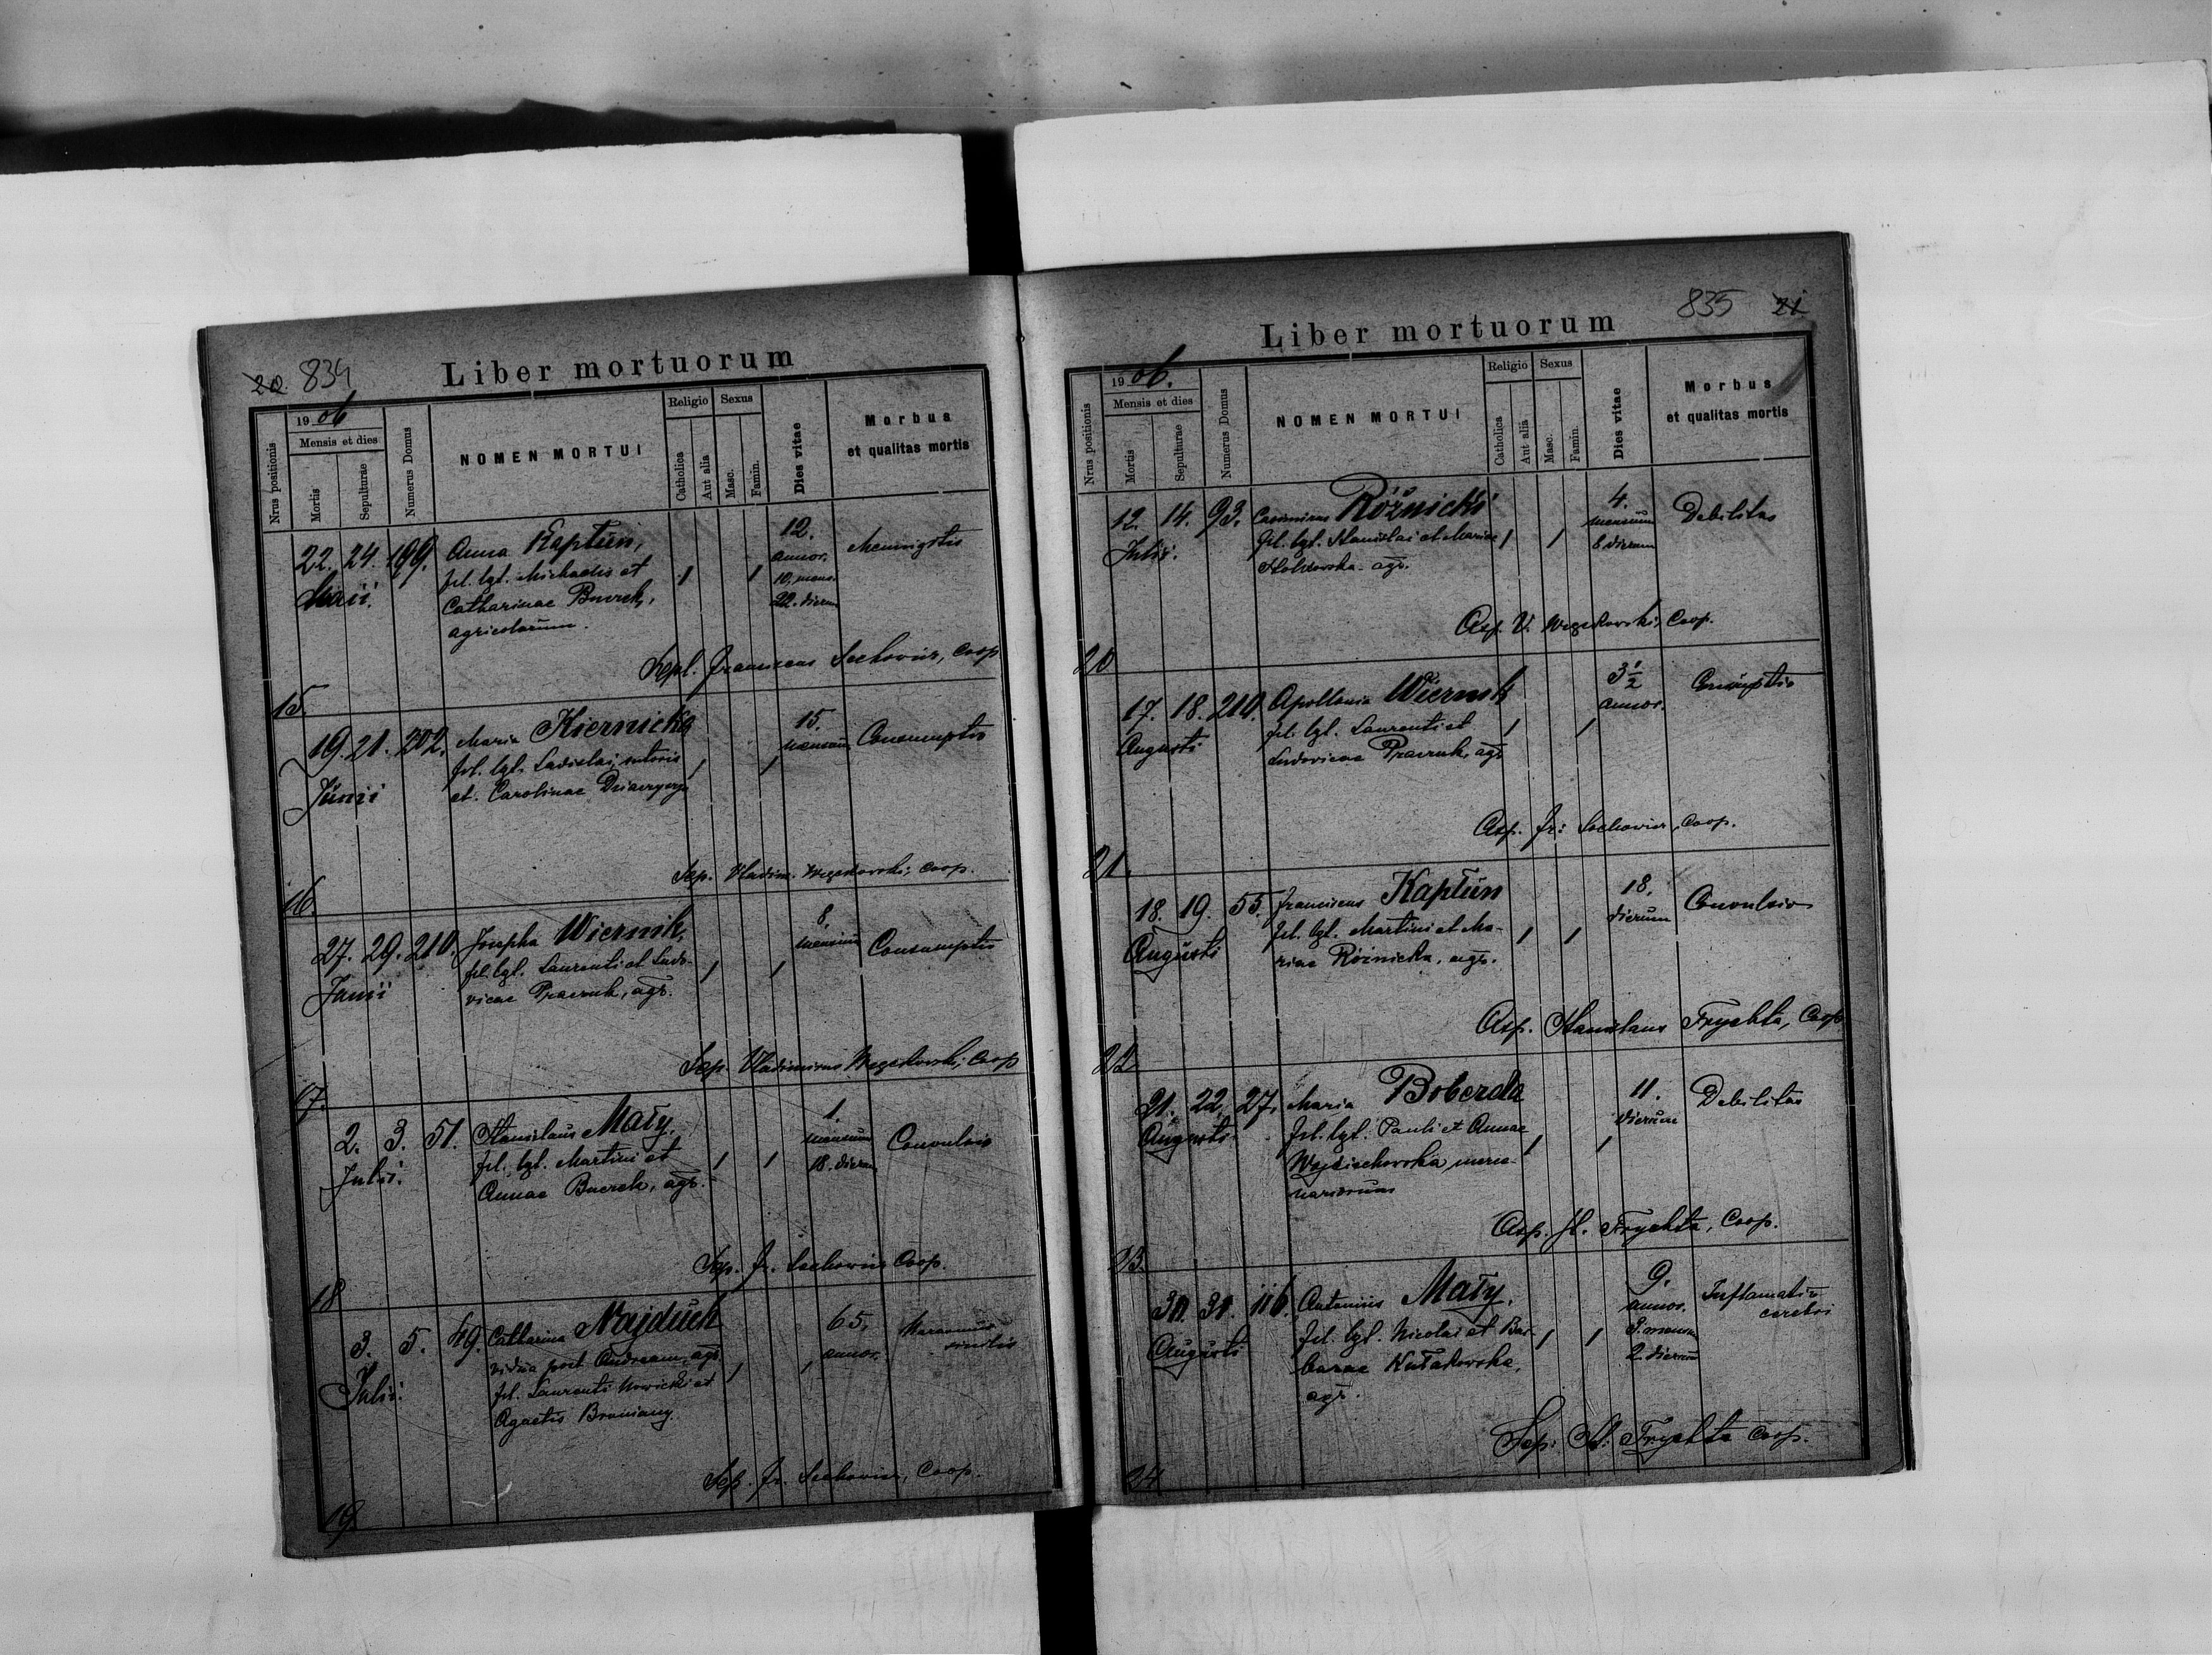 20. 834
Liber mortuorum
Nrus positionis
1906
Mensis et dies
Mortis
Sepulturae
Numerus Domus
NOMEN MORTUI
Religio
Catholica
Aut alia
Sexus
Masc.
Famin.
Dies vitae
Morbus
et qualitas mortis
22. 24. 199. Anna Kaptun, 1 1 12. Meningitis
Maii. fil. lgt. Michaelis et annor.
Catharinae 10. mens.
agricolarum. 22. dierum
Sepl. Franciscus Sechowicz, Coop
15.
19. 21. 202. Maria Kiernicka 15. Consumptio
Junii fil. lgt. Ladislai, sutoris 1 1 mensium
et Carolinae
Sep. Vladim. Węgrkowski, Coop.
16.
27. 29. 210. Josepha Wiernik, 8. Consumptio
Junii fil. lgt. Laurenti et Ludo- 1 1 mensium
vicae agr.
Sep. Vladimirus Coop
17.
2. 3. 51. Stanislaus Mały. 1. Convulsio
Julii. fil. lgt. Martini et 1 1 mensium
Annae agr. 18. dierum
Sep. Fr. Sechowicz Coop.
18
3. 5. 49. Catharina Najduch 65. Marasmus
Julii. vidua post Andream, agr. 1 1 annor. senilis
fil. Laurenti Nowicki et
Agaetis
Sep. Fr. Sechowicz, Coop.
19.
835 21
Liber mortuorum
Nrus positionis
1906.
Mensis et dies
Mortis
Sepulturae
Numerus Domus
NOMEN MORTUI
Religio
Catholica
Aut alia
Sexus
Masc.
Famin.
Dies vitae
Morbus
et qualitas mortis
12. 14. 93. Casimirus Różnicki 4. Debilitas
Julii. fil. lgt. Stanislai et Mariae 1 1 mensium
agr. 8 dierum
Asp. V. Coop.
20
17. 18. 210. Apollonia Wiernik 3 1/2 Consumptio
Augusti fil. lgt. Laurenti et 1 1 annor.
Ludovicae agr
Asp. Fr: Sechowicz, Coop.
21.
18. 19. 55. Franciscus Kaptun 18. Convulsio
Augusti fil. lgt. Martini et Ma- 1 1 dierum
riae Róznicka, agr.
Asp. Stanislaus Trychta, Coop
22
21. 22. 27. Maria Boberda 11. Debilitas
Augusti fil. lgt. Pauli et Annae 1 1 dierum
Wojciechowska merce-
nariorum
Asp. St. Trychta, Coop.
23.
30. 31. 116. Antonius Mały. 9. Inflamatio
Augusti fil. lgt. Nicolai et Bar- 1 1 annor. cerebri
barae Kułakowska, mensium
agr. 2. dierum
Sep: St: Trychta Coop.
24